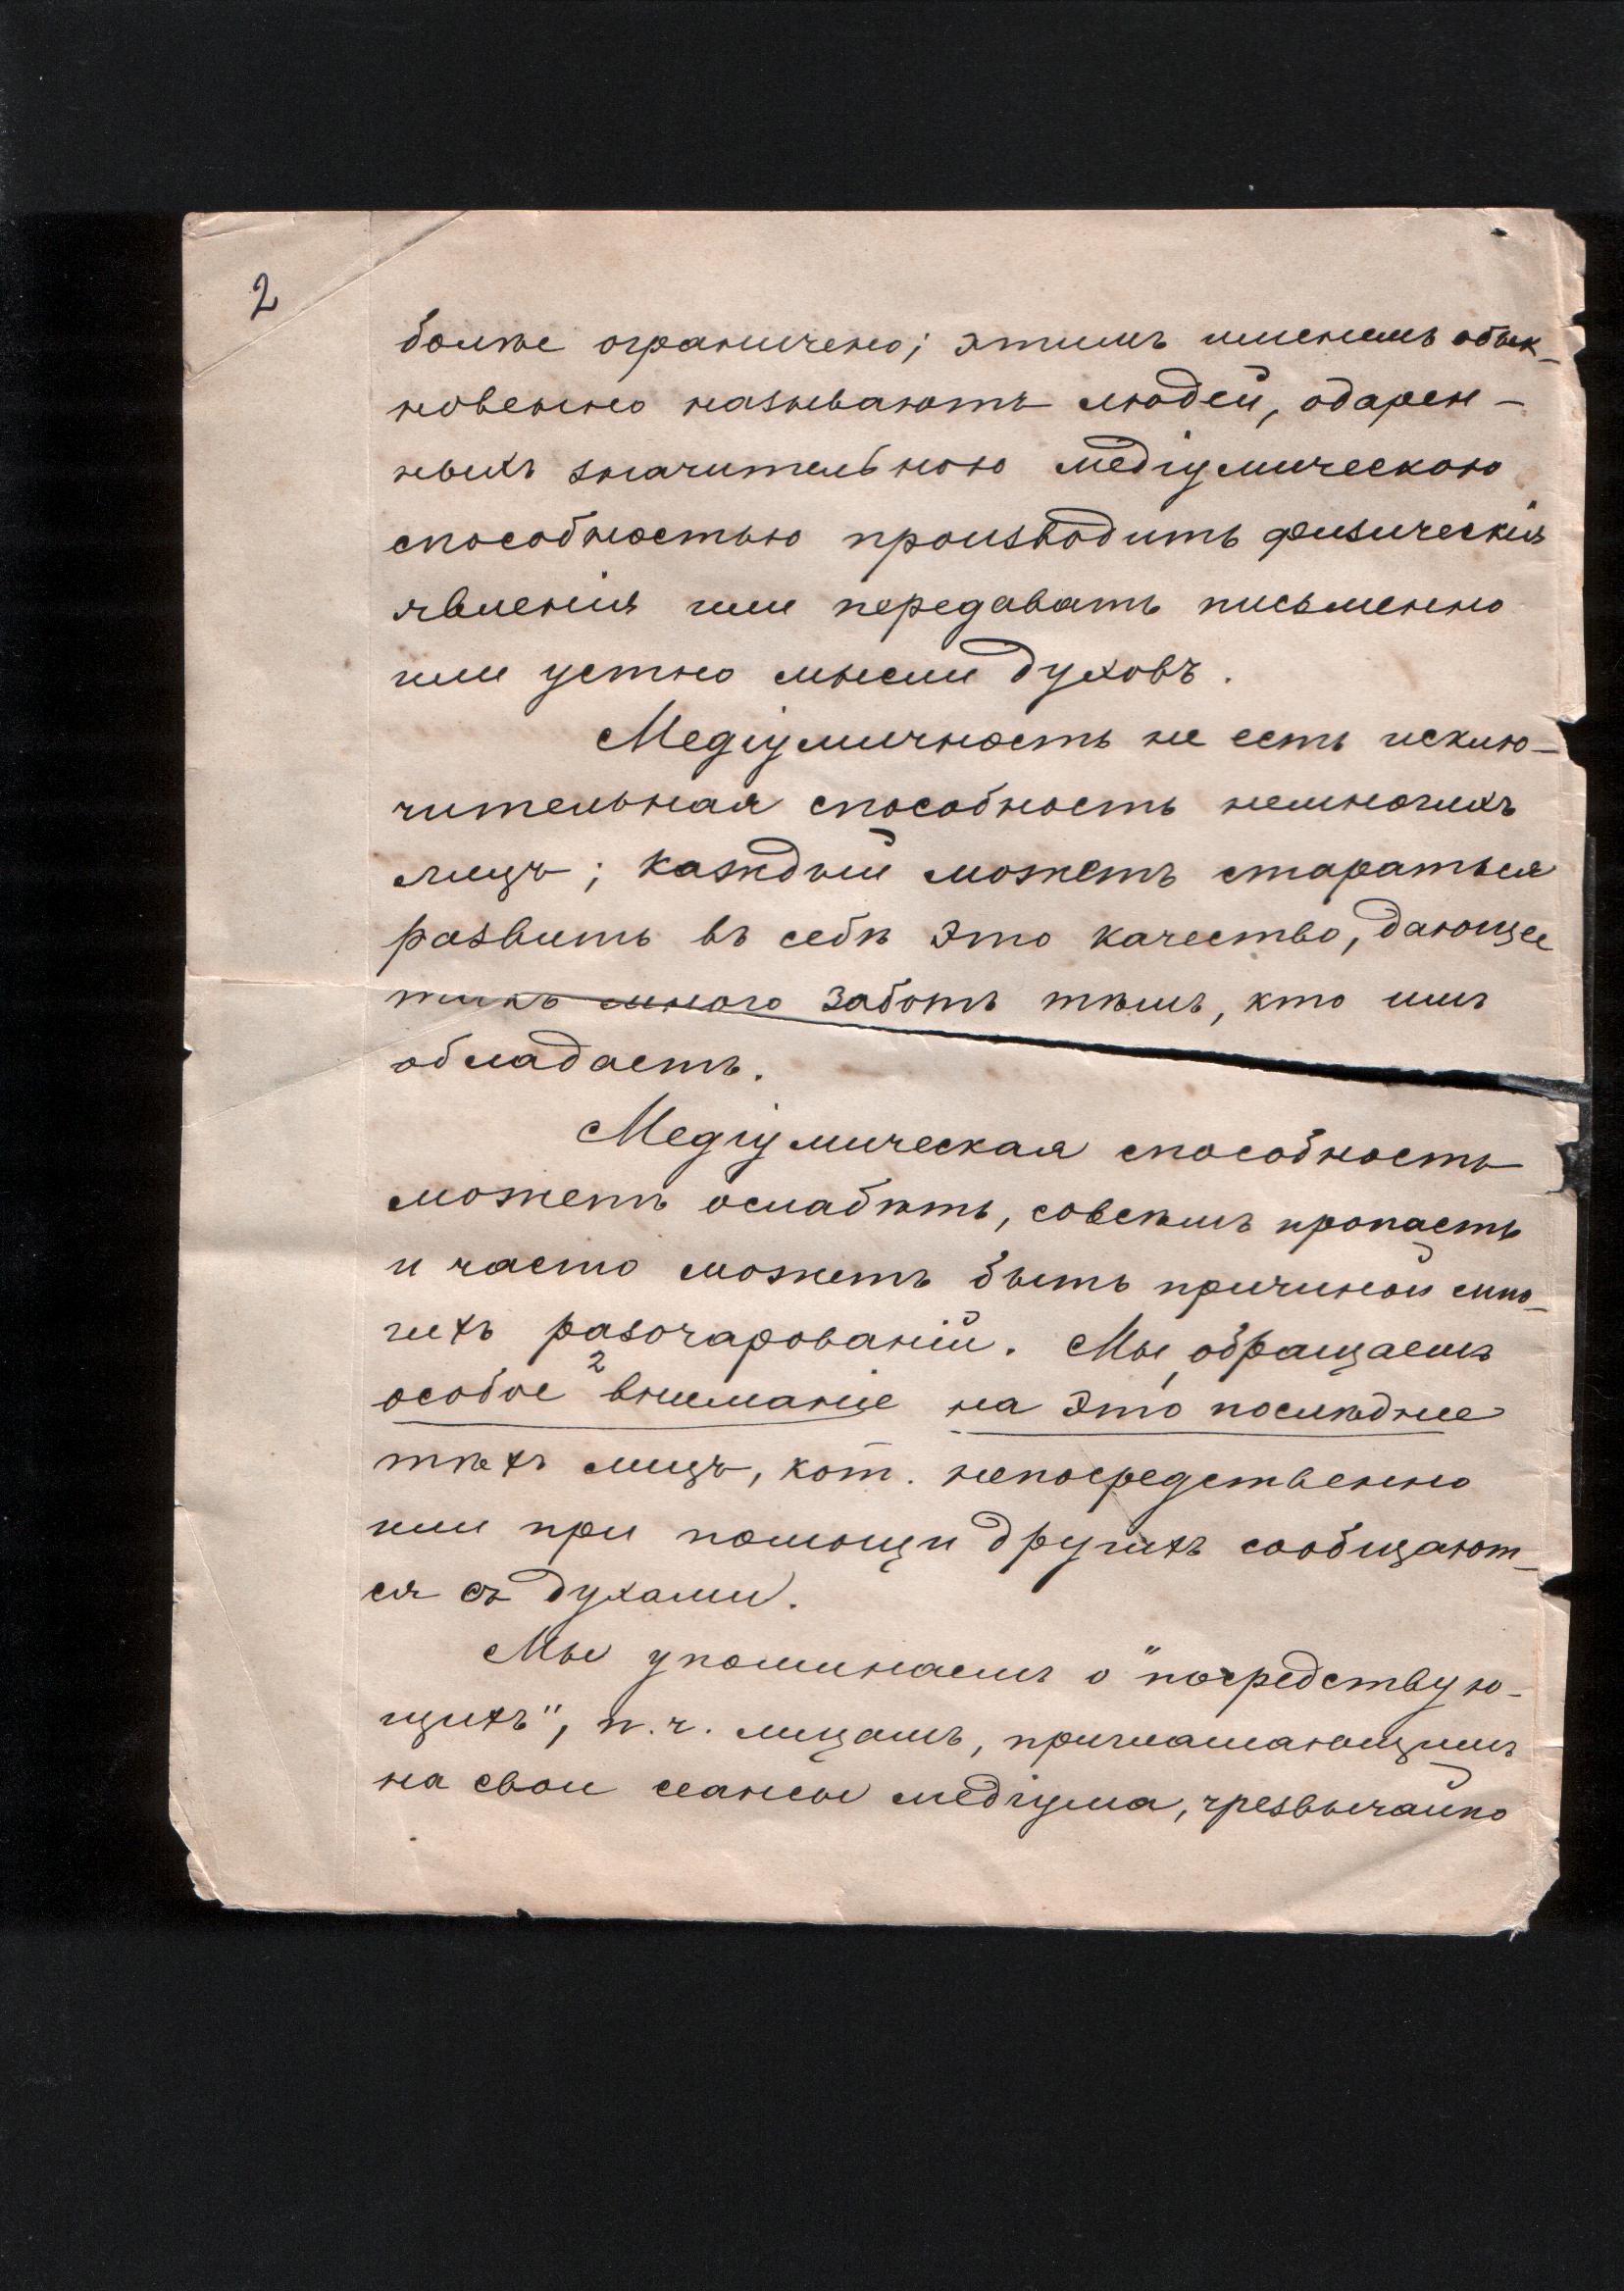 2
болѣе ограничено; этимъ именемъ обык-
новенно называютъ людей, одарен-
ныхъ значительною медіумическою
способностью производить физическія
явленія или передавать письменно
или устно мысли духовъ.
Медіумичность не есть исклю-
чительная способность немногихъ
лицъ; каждый можетъ стараться
развить въ себѣ это качество, дающее
много заботъ тѣмъ, кто имъ
обладаетъ.
Медіумическая способность
можетъ ослабѣть, совсѣмъ пропасть
и часто можетъ быть причиной мно-
гихъ разочарованій. Мы обращаемъ
особое 2 вниманіе на это послѣднее
тѣхъ лицъ, кот. непосредственно
или при помощи другихъ сообщают-
ся съ духами.
Мы упоминаемъ о "посредствую-
щихъ", п.ч. лицамъ, приглашающимъ
на свои сеансы медіума, чрезвычайно